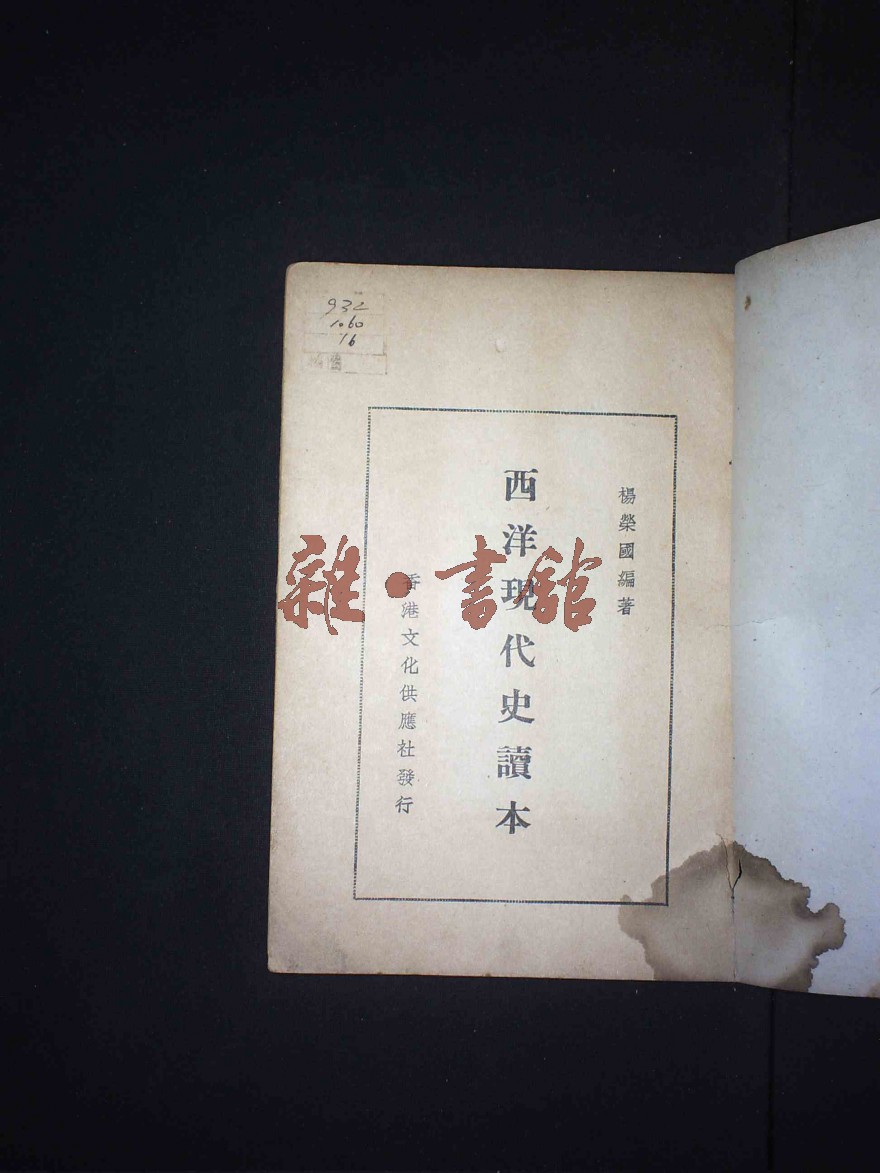 932
1060
16
楊榮國編著
西洋現代史讀本
香港文化供應社發行
雜·書館